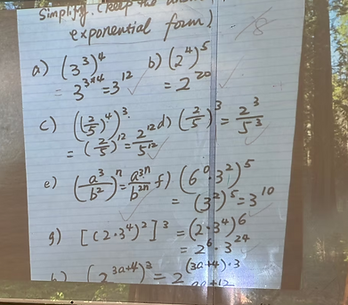 Simplify. (keep the
exponential form)
a) (3³)⁴ b) (2⁴)⁵
= 3^{3×4} = 3¹² = 2²⁰
c) ((2/5)⁴)³ d) (2/5)³ = 2³/5³
= (2/5)¹² = 2¹²/5¹²
e) (a³/b²)ⁿ = a³ⁿ/b²ⁿ f) (6⁰·3²)⁵
= (3²)⁵ = 3¹⁰
g) [(2·3⁴)²]³ = (2·3⁴)⁶
= 2⁶·3²⁴
h) (2^{3a+4})³ = 2^{(3a+4)·3}